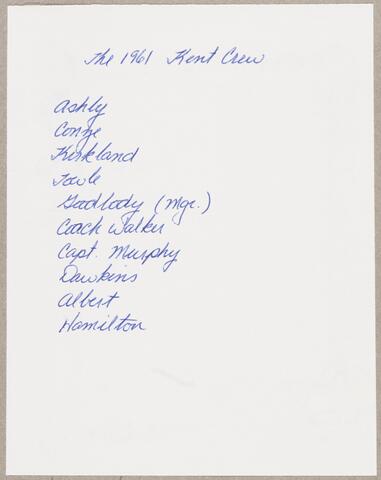 The 1961 Kent Crew
Ashly
Kirkland
Towle
Goodbody (Mgr.)
Coach Walker
Capt. Murphy
Dawkins
Albert
Hamilton